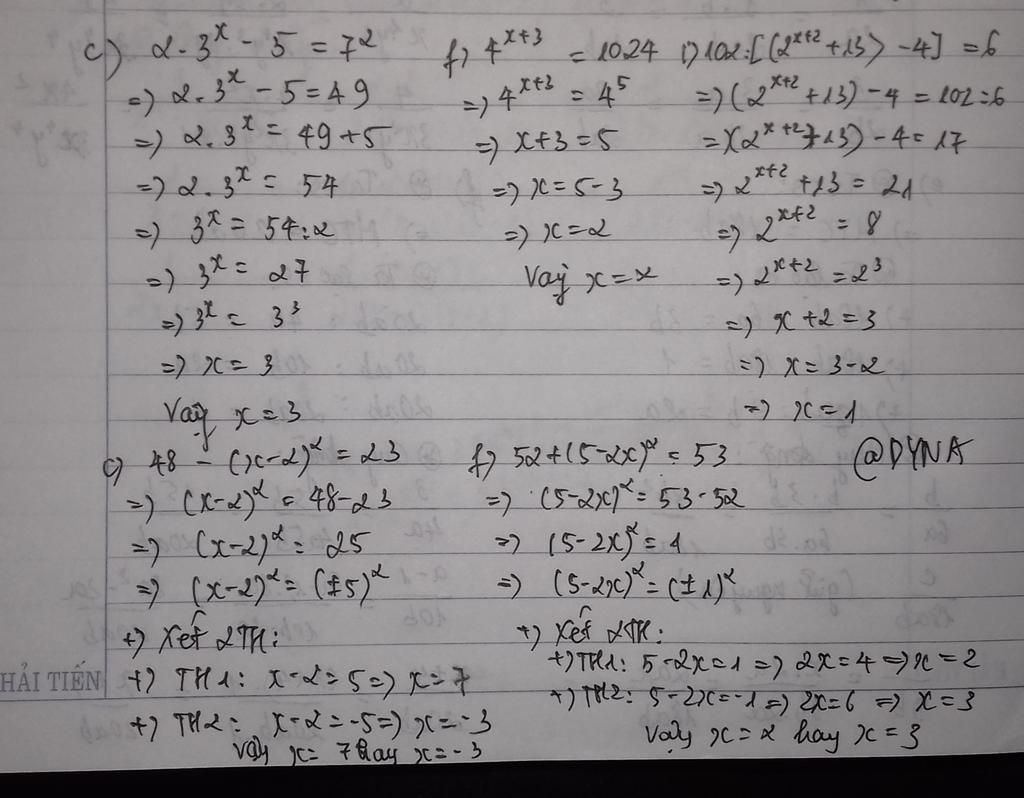 c) 2.3^x - 5 = 7^2
=) 2.3^x - 5 = 49
=) 2.3^x = 49 + 5
=) 2.3^x = 54
=) 3^x = 54:2
=) 3^x = 27
=) 3^x = 3^3
=) x = 3
Vậy x = 3
f) 4^{x+3} = 1024
=) 4^{x+3} = 4^5
=) x + 3 = 5
=) x = 5 - 3
=) x = 2
Vậy x = 2
i) 102:[(2^{x+2} + 13) - 4] = 6
=) (2^{x+2} + 13) - 4 = 102:6
=) (2^{x+2} + 13) - 4 = 17
=) 2^{x+2} + 13 = 21
=) 2^{x+2} = 8
=) 2^{x+2} = 2^3
=) x + 2 = 3
=) x = 3 - 2
=) x = 1
c) 48 - (x - 2)^2 = 23
=) (x - 2)^2 = 48 - 23
=) (x - 2)^2 = 25
=) (x - 2)^2 = (±5)^2
+) Xét 2TH:
+) TH1: x - 2 = 5 =) x = 7
+) TH2: x - 2 = -5 =) x = -3
Vậy x = 7 hay x = -3
f) 52 + (5 - 2x)^2 = 53
=) (5 - 2x)^2 = 53 - 52
=) (5 - 2x)^2 = 1
=) (5 - 2x)^2 = (±1)^2
+) Xét 2TH:
+) TH1: 5 - 2x = 1 =) 2x = 4 =) x = 2
+) TH2: 5 - 2x = -1 =) 2x = 6 =) x = 3
Vậy x = 2 hay x = 3
@DYNA
HẢI TIẾN